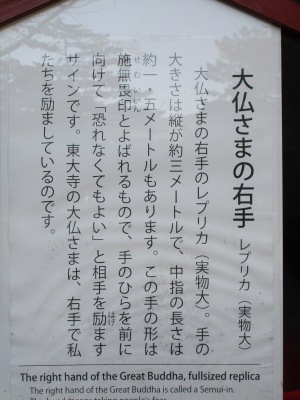 大仏さまの右手 レプリカ（実物大）
大仏さまの右手のレプリカ（実物大）。手の
大きさは縦が約三メートルで、中指の長さは
約一・五メートルもあります。この手の形は
施無畏印とよばれるもので、手のひらを前に
せむいいん
向けて「恐れなくてもよい」と相手を励ます
はげ
サインです。東大寺の大仏さまは、右手で私
たちを励ましているのです。
The right hand of the Great Buddha, fullsized replica
The right hand of the Great Buddha is called a Semui-in.